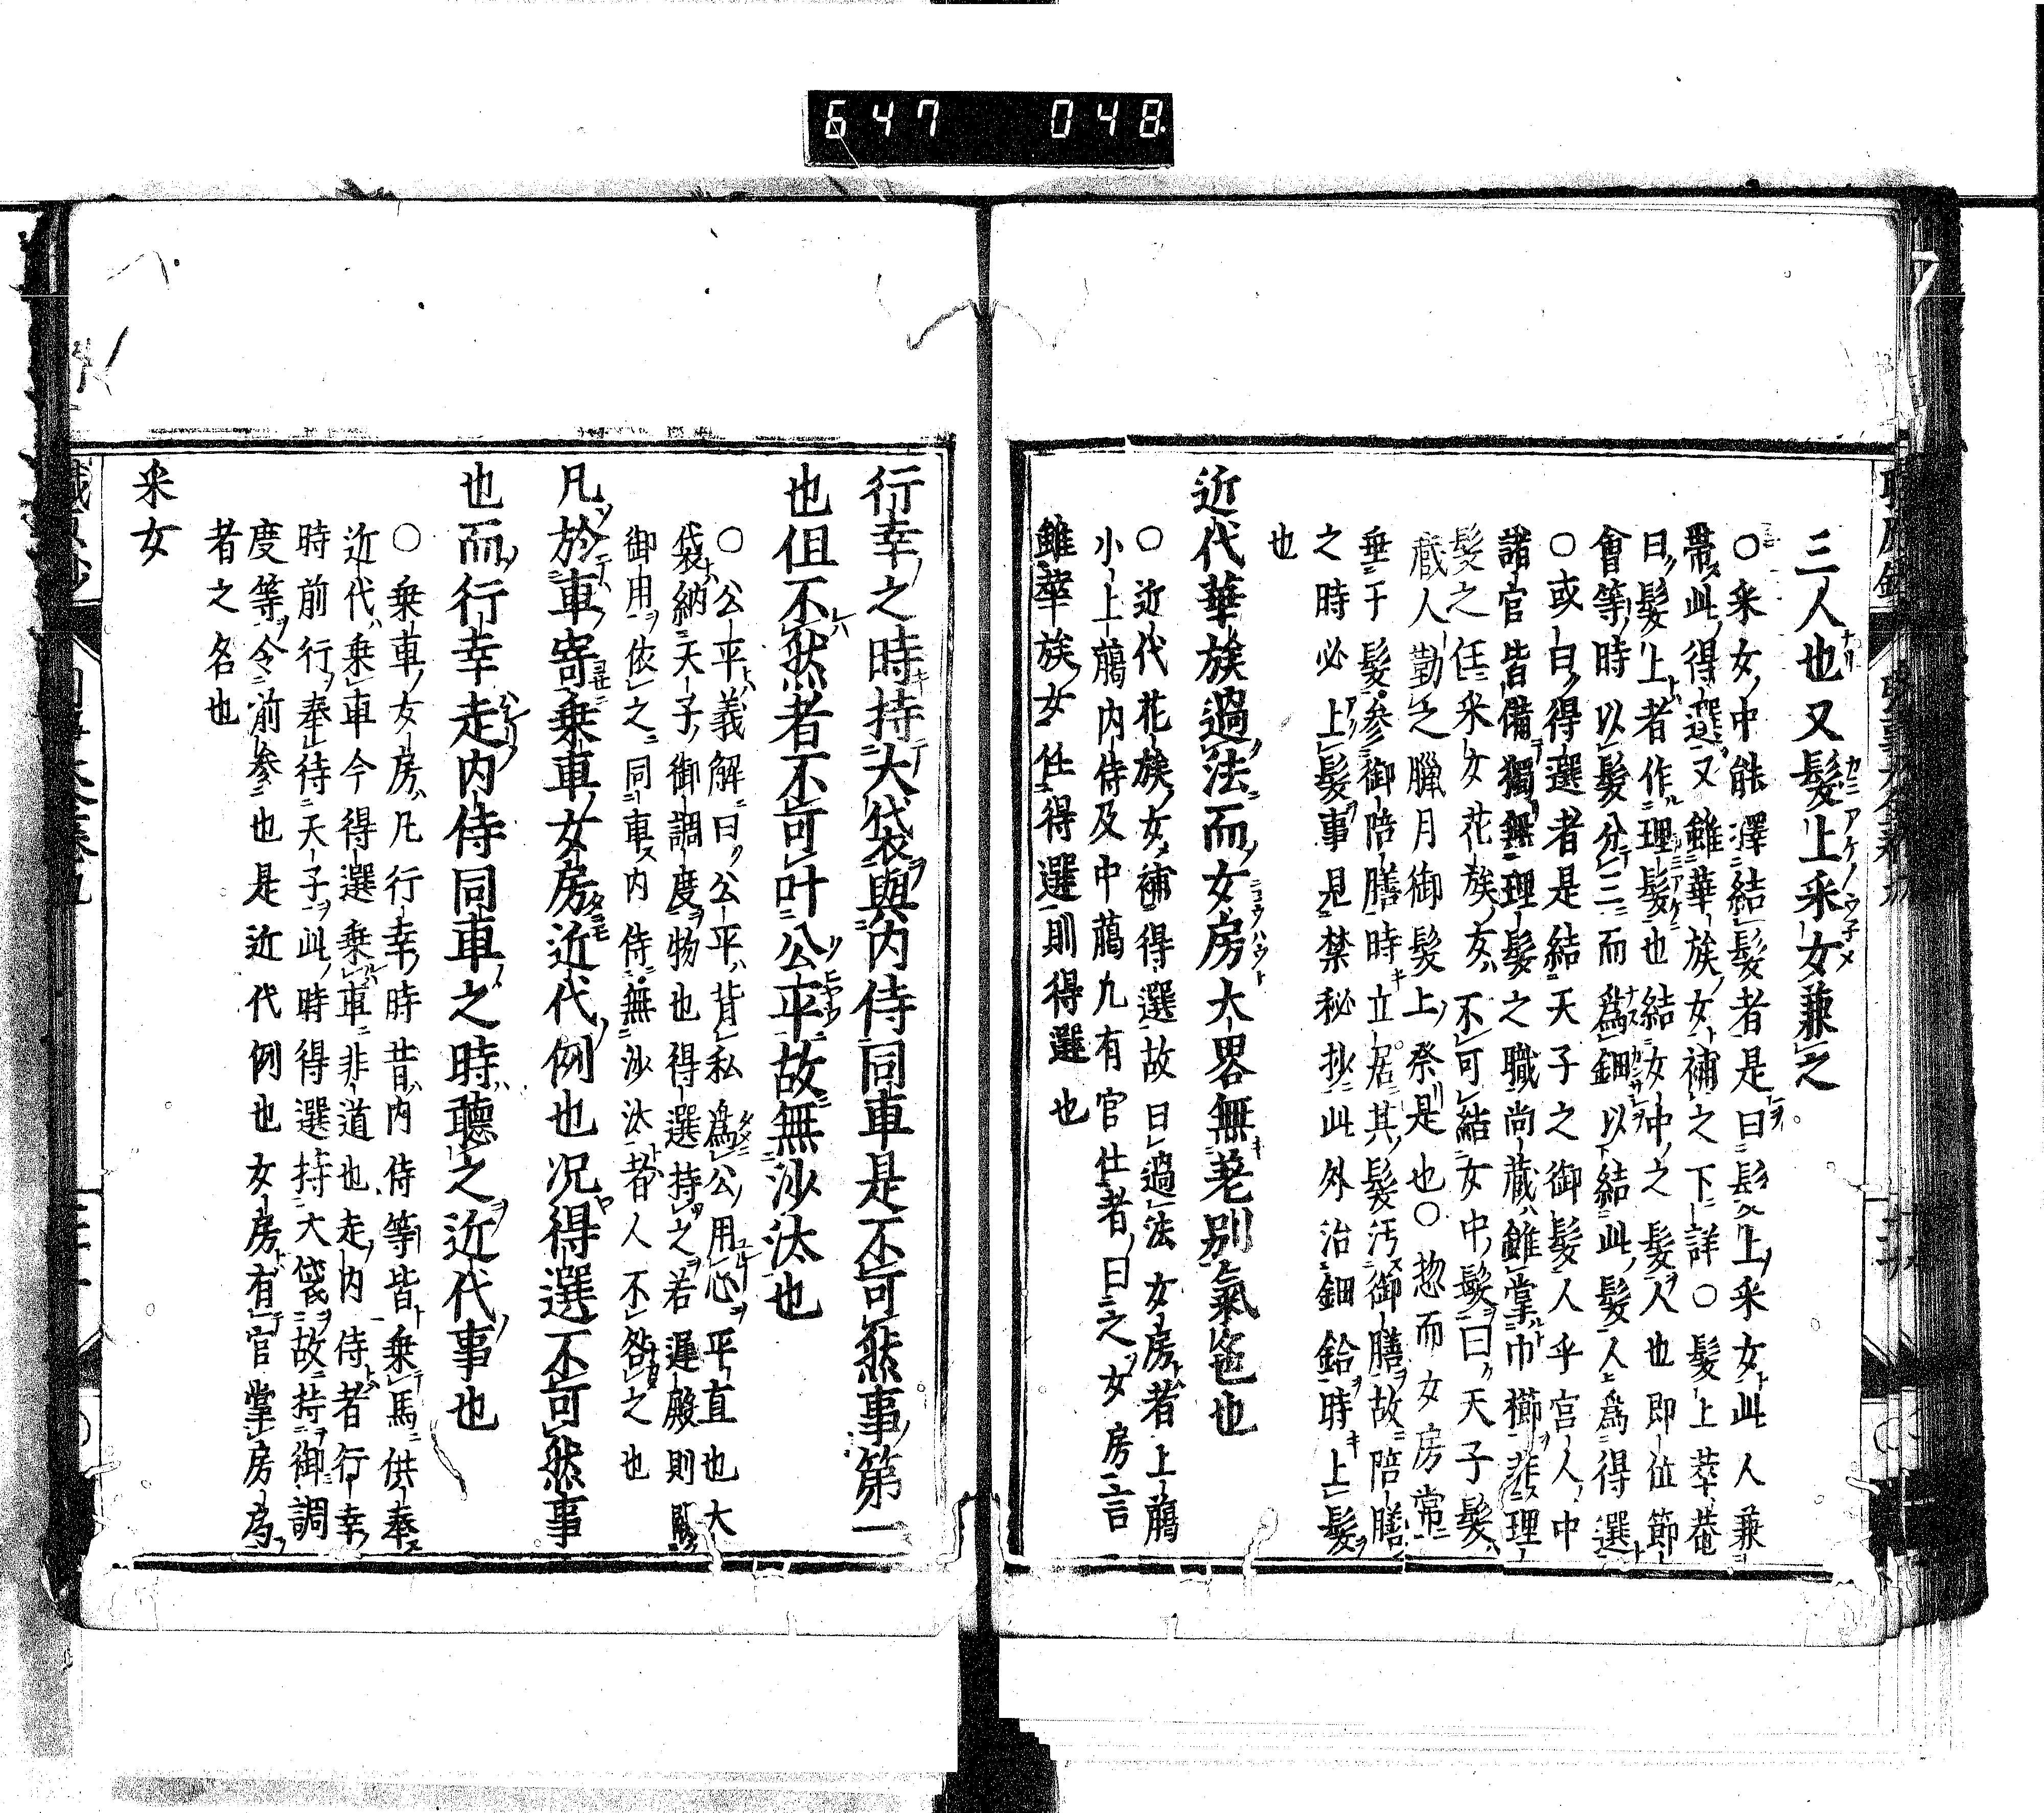 647 048
三人也又髮上采女兼之
○采女中能擇結髮者是曰髮上采女此人兼
帶此得選又雖華族女補之下詳○髮上萃菴
曰髮上者作理髮也結女中之髮人也即位節
會等時以髮分三而爲鈿以結此髮人爲得選
○或曰得選者是結天子之御髮人乎宮人中
諸官皆備獨無理髮之職尚藏雖掌巾櫛非理
髮之任采女花族女不可結女中髮曰天子髮
藏人勤之臘月御髮上祭是也○惣而女房常
垂于髮參御陪膳時立居其髮汚御膳故陪膳
之時必上髮事見禁秘抄此外治鈿鉿時上髮
也
近代華族過法而女房大畧無差別氣色也
○近代花族女補得選故曰過法女房者上﨟
小上﨟內侍及中﨟九有官仕者曰之女房言
雖華族女仕得選則得選也
行幸之時持大袋與內侍同車是不可然事第一
也但不然者不可叶公平故無沙汰也
○公平義解曰公平背私爲公用心平直也大
袋納天子御調度物也得選持之若遲殿則
御用依之同車內侍無沙汰者人不咎之也
凡於車寄乘車女房近代例也況得選不可然事
也而行幸走內侍同車之時聽之近代事也
○乘車女房凡行幸時昔內侍等皆乘馬供奉
近代乘車今得選乘車非道也走內侍者行幸
時前行奉待天子此時得選持大袋故持御調
度等令前參也是近代例也女房有官掌房爲
者之名也
采女